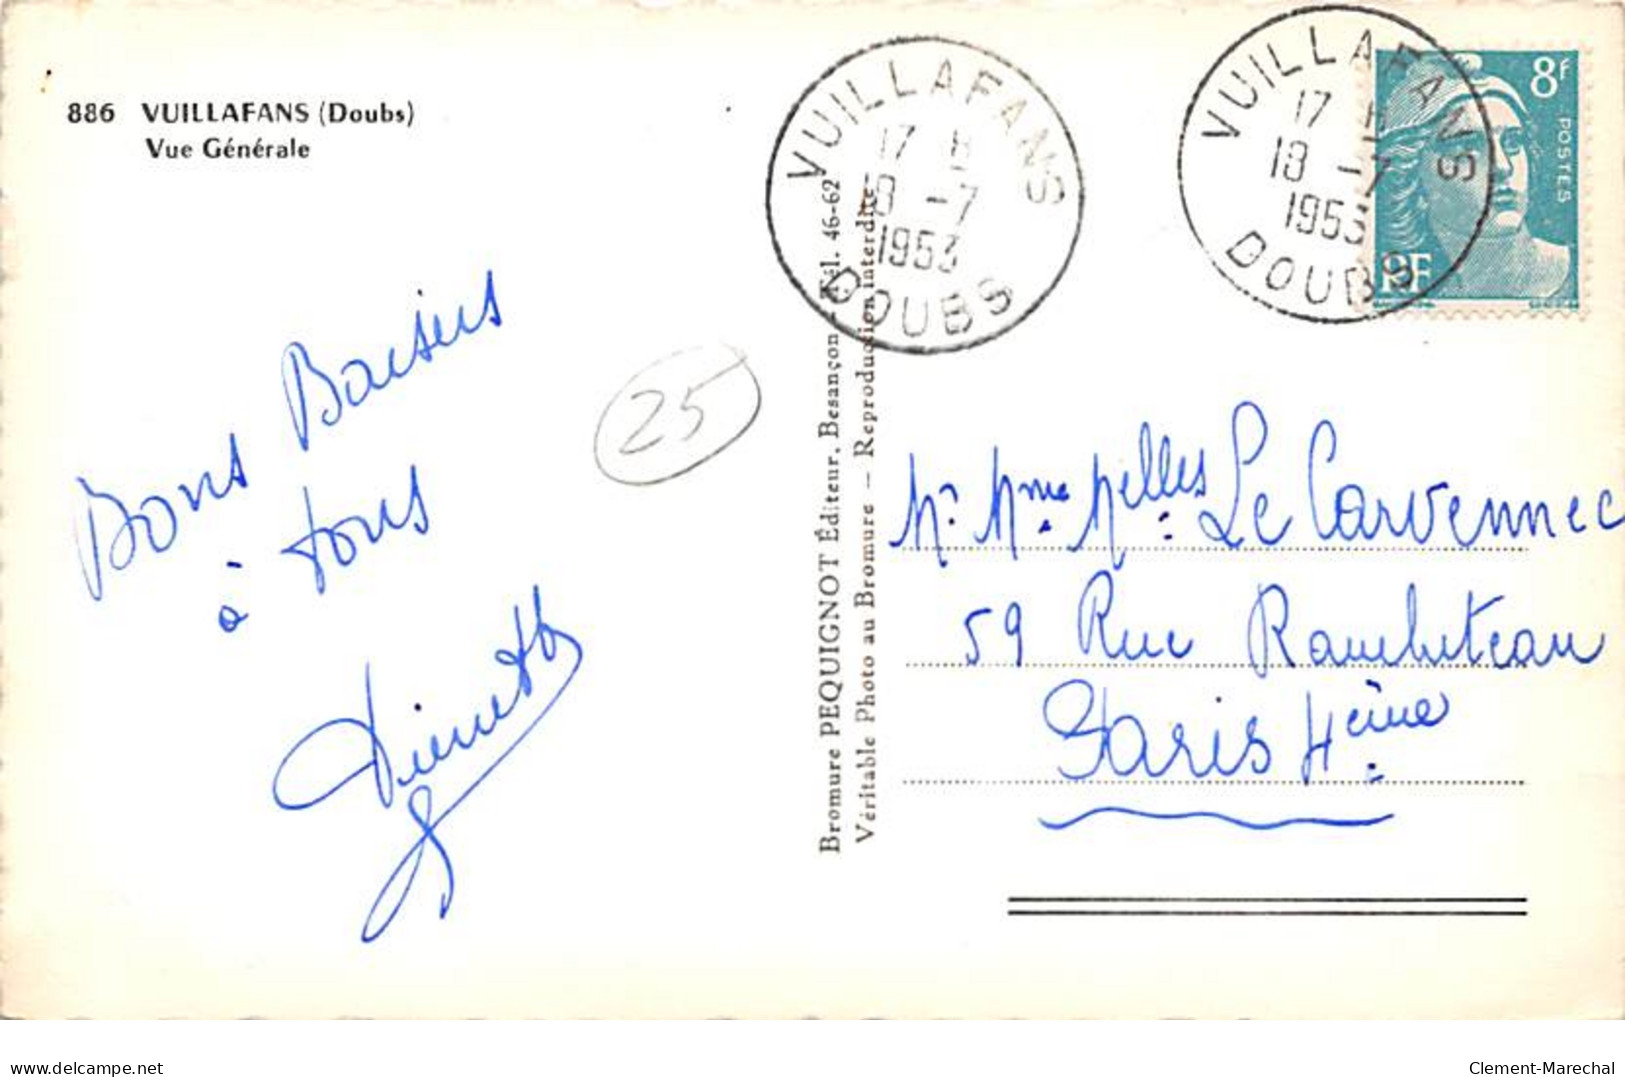 886 VUILLAFANS (Doubs)
Vue Générale
VUILLAFANS
17 H
18 -7
1953
DOUBS
VUILLAFANS
17 H
18 -7
1953
DOUBS
8f
POSTES
RF
Bons Baisers
à tous
25
Bromure PEQUIGNOT Éditeur, Besançon - Tél. 46-62
Véritable Photo au Bromure — Reproduction interdite
Mr. Mme. Melles Le Carvennec
59 Rue Rambuteau
Paris 4ème
www.delcampe.net
Clement-Marechal